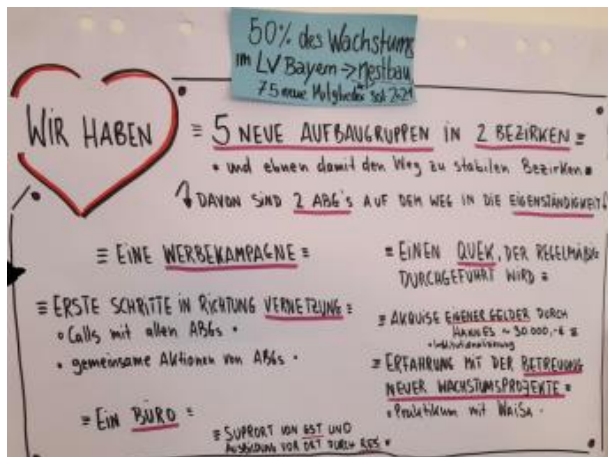 50% des Wachstums
im LV Bayern → nestbau
75 neue Mitglieder seit 2021
WIR HABEN
= 5 NEUE AUFBAUGRUPPEN IN 2 BEZIRKEN =
• und ebnen damit den Weg zu stabilen Bezirken •
↳ DAVON SIND 2 ABG's AUF DEM WEG IN DIE EIGENSTÄNDIGKEIT
= EINE WERBEKAMPAGNE =
= ERSTE SCHRITTE IN RICHTUNG VERNETZUNG =
• Calls mit allen ABGs •
• gemeinsame Aktionen von ABGs •
= EIN BÜRO =
= EINEN QUEK, DER REGELMÄßIG
DURCHGEFÜHRT WIRD =
= AKQUISE EIGENER GELDER DURCH
HANNES ~ 30.000,-€ =
• Institutionalisierung
= ERFAHRUNG MIT DER BETREUUNG
NEUER WACHSTUMSPROJEKTE =
• Praktikum mit WaiSa •
= SUPPORT VON GST UND
AUSBILDUNG VOR ORT DURCH